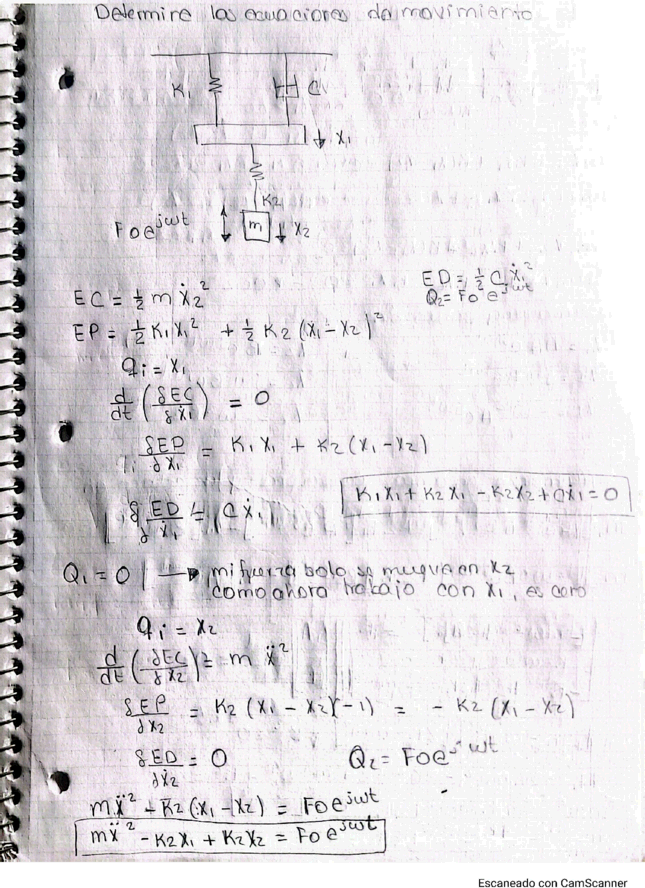 Determine las ecuaciones de movimiento
K1
C
X1
K2
Foe^jwt
m
X2
EC = ½ m ẋ2²
ED = ½ C ẋ1²
Q2 = Fo e^jwt
EP = ½ K1X1² + ½ K2 (X1 - X2)²
qi = X1
d/dt (δEC/δẋ1) = 0
δEP/δX1 = K1 X1 + K2 (X1 - X2)
K1X1 + K2X1 - K2X2 + Cẋ1 = 0
δED/δẋ1 = Cẋ1
Q1 = 0 | → mi fuerza solo se mueve en X2
como ahora trabajo con X1, es cero
qi = X2
d/dt (δEC/δẋ2) = m ẍ²
δEP/δX2 = K2 (X1 - X2)(-1) = - K2 (X1 - X2)
δED/δẋ2 = 0
Q2 = Foe^jwt
mẍ² - K2 (X1 - X2) = Foe^jwt
mẍ² - K2X1 + K2X2 = Foe^jwt
Escaneado con CamScanner